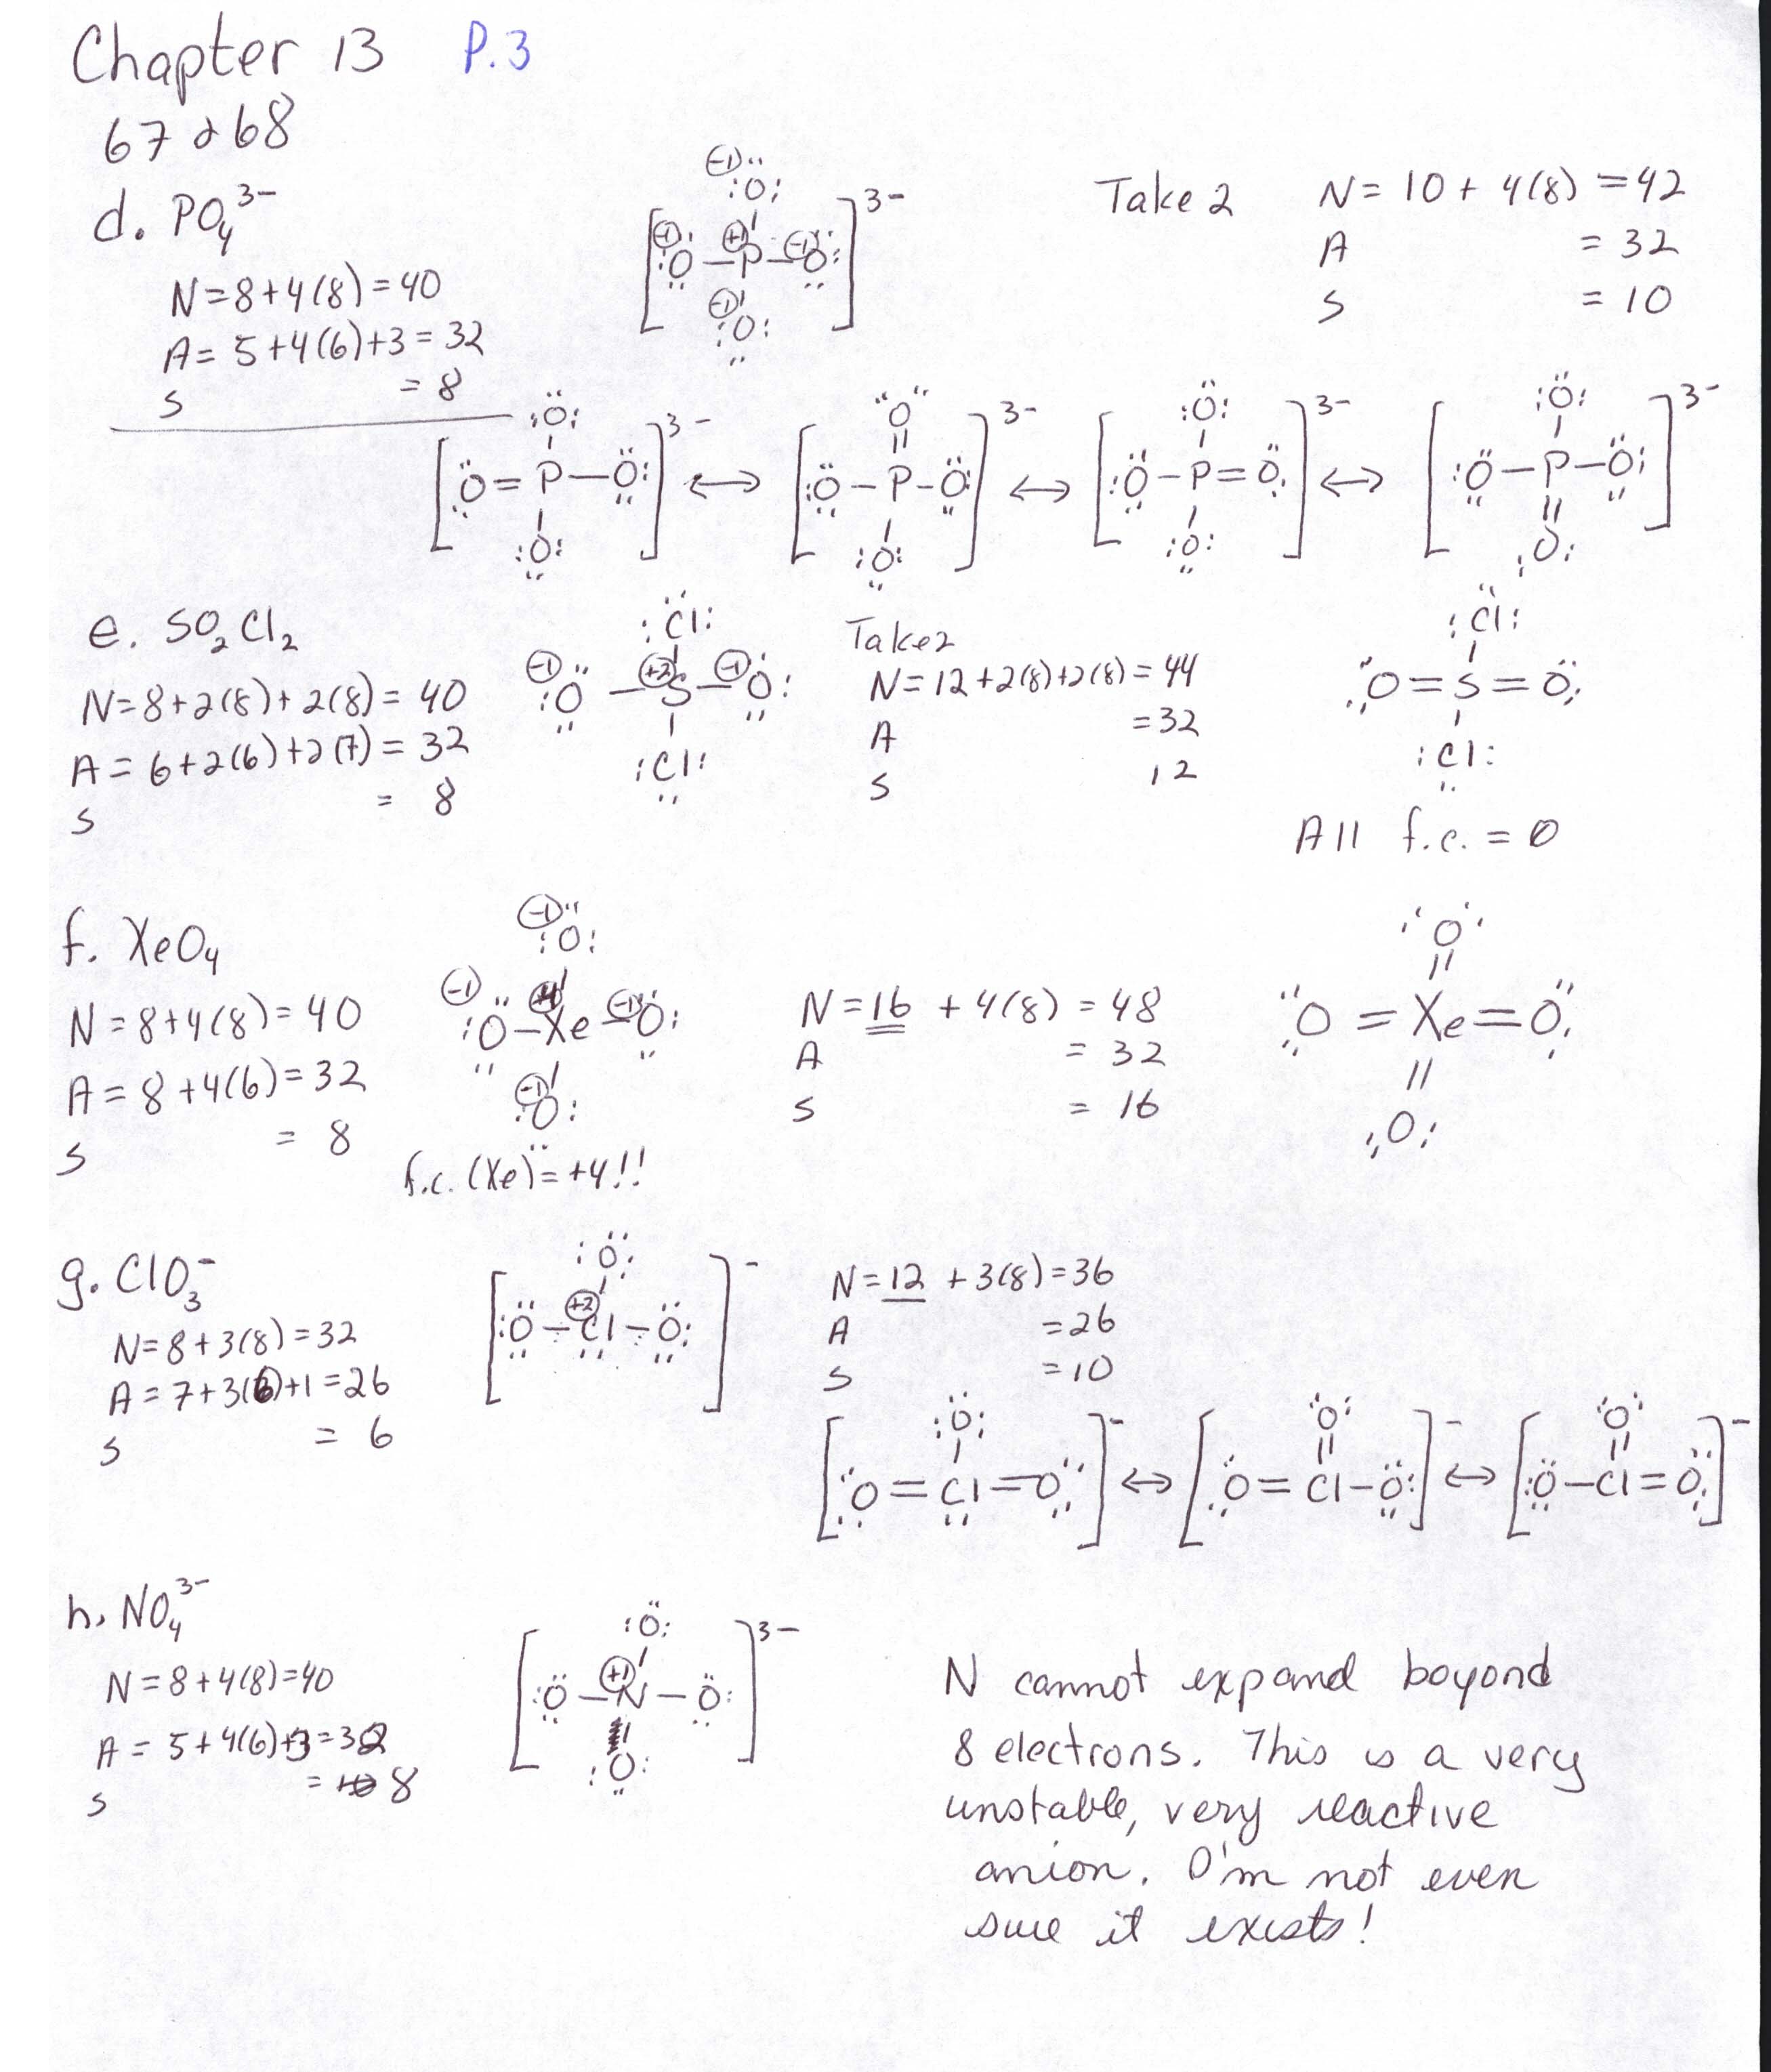 Chapter 13 P.3
67 & 68
d. PO₄³⁻
N = 8 + 4(8) = 40
A = 5 + 4(6) + 3 = 32
S = 8
[:Ö–P–Ö:]³⁻
Take 2 N = 10 + 4(8) = 42
A = 32
S = 10
[Ö=P–Ö:]³⁻ ↔ [:Ö–P–Ö:]³⁻ ↔ [:Ö–P=Ö]³⁻ ↔ [:Ö–P–Ö:]³⁻
e. SO₂Cl₂
N = 8 + 2(8) + 2(8) = 40
A = 6 + 2(6) + 2(7) = 32
S = 8
:Cl:
:Ö–S–Ö:
:Cl:
Take 2
N = 12 + 2(8) + 2(8) = 44
A = 32
S 12
:Cl:
O=S=O
:Cl:
All f.c. = 0
f. XeO₄
N = 8 + 4(8) = 40
A = 8 + 4(6) = 32
S = 8
:O:
:Ö–Xe–O:
:O:
f.c. (Xe) = +4!!
N = 16 + 4(8) = 48
A = 32
S = 16
O
O=Xe=O
O
g. ClO₃⁻
N = 8 + 3(8) = 32
A = 7 + 3(6) + 1 = 26
S = 6
[:Ö–Cl–Ö:]⁻
N = 12 + 3(8) = 36
A = 26
S = 10
[O=Cl=O]⁻ ↔ [O=Cl–Ö:]⁻ ↔ [:Ö–Cl=O]⁻
h. NO₄³⁻
N = 8 + 4(8) = 40
A = 5 + 4(6) + 3 = 32
S = 8
[:Ö–N–Ö:]³⁻
N cannot expand boyond
8 electrons. This is a very
unstable, very reactive
anion. I'm not even
sure it exists!